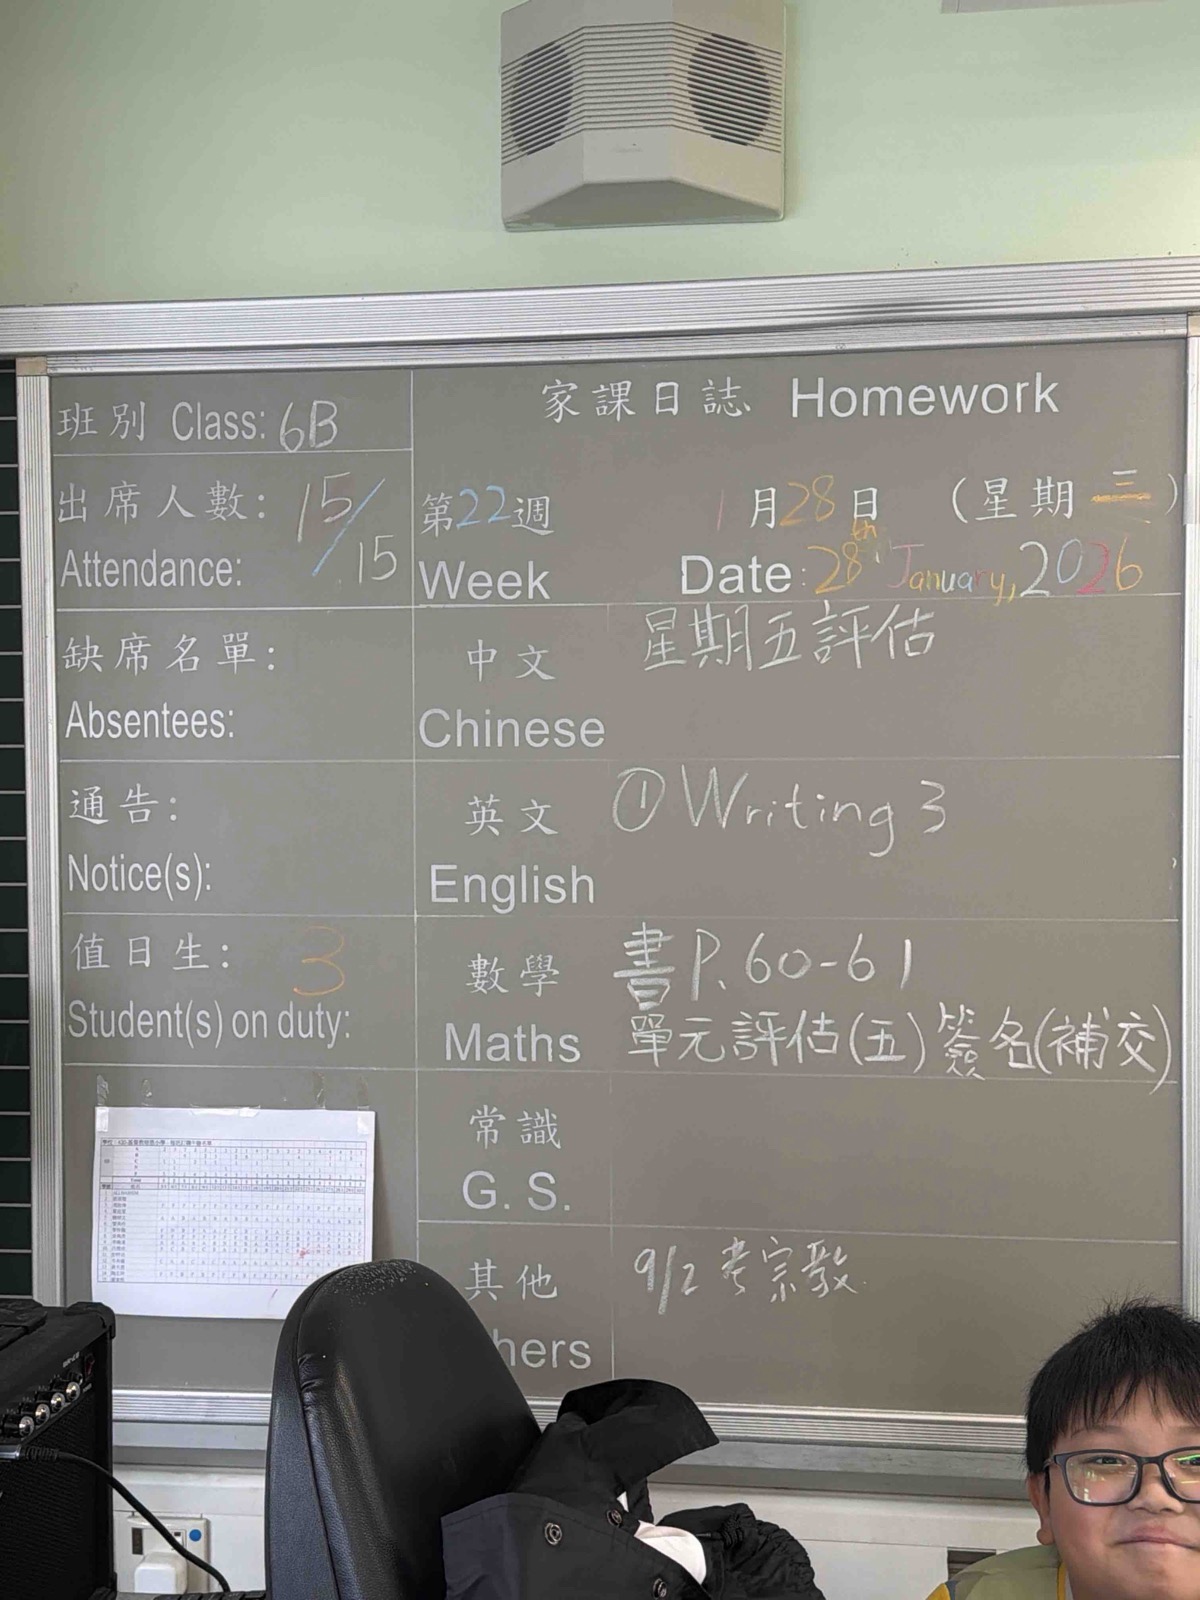 家課日誌 Homework
班別 Class: 6B
出席人數: 15/15
Attendance:
第22週 1月28日 (星期三)
Week Date: 28th January, 2026
缺席名單:
Absentees:
中文 星期五評估
Chinese
通告:
Notice(s):
英文 ① Writing 3
English
值日生: 3
Student(s) on duty:
數學 書P.60-61
Maths 單元評估(五)簽名(補交)
常識
G. S.
其他 9/2 考宗教
hers